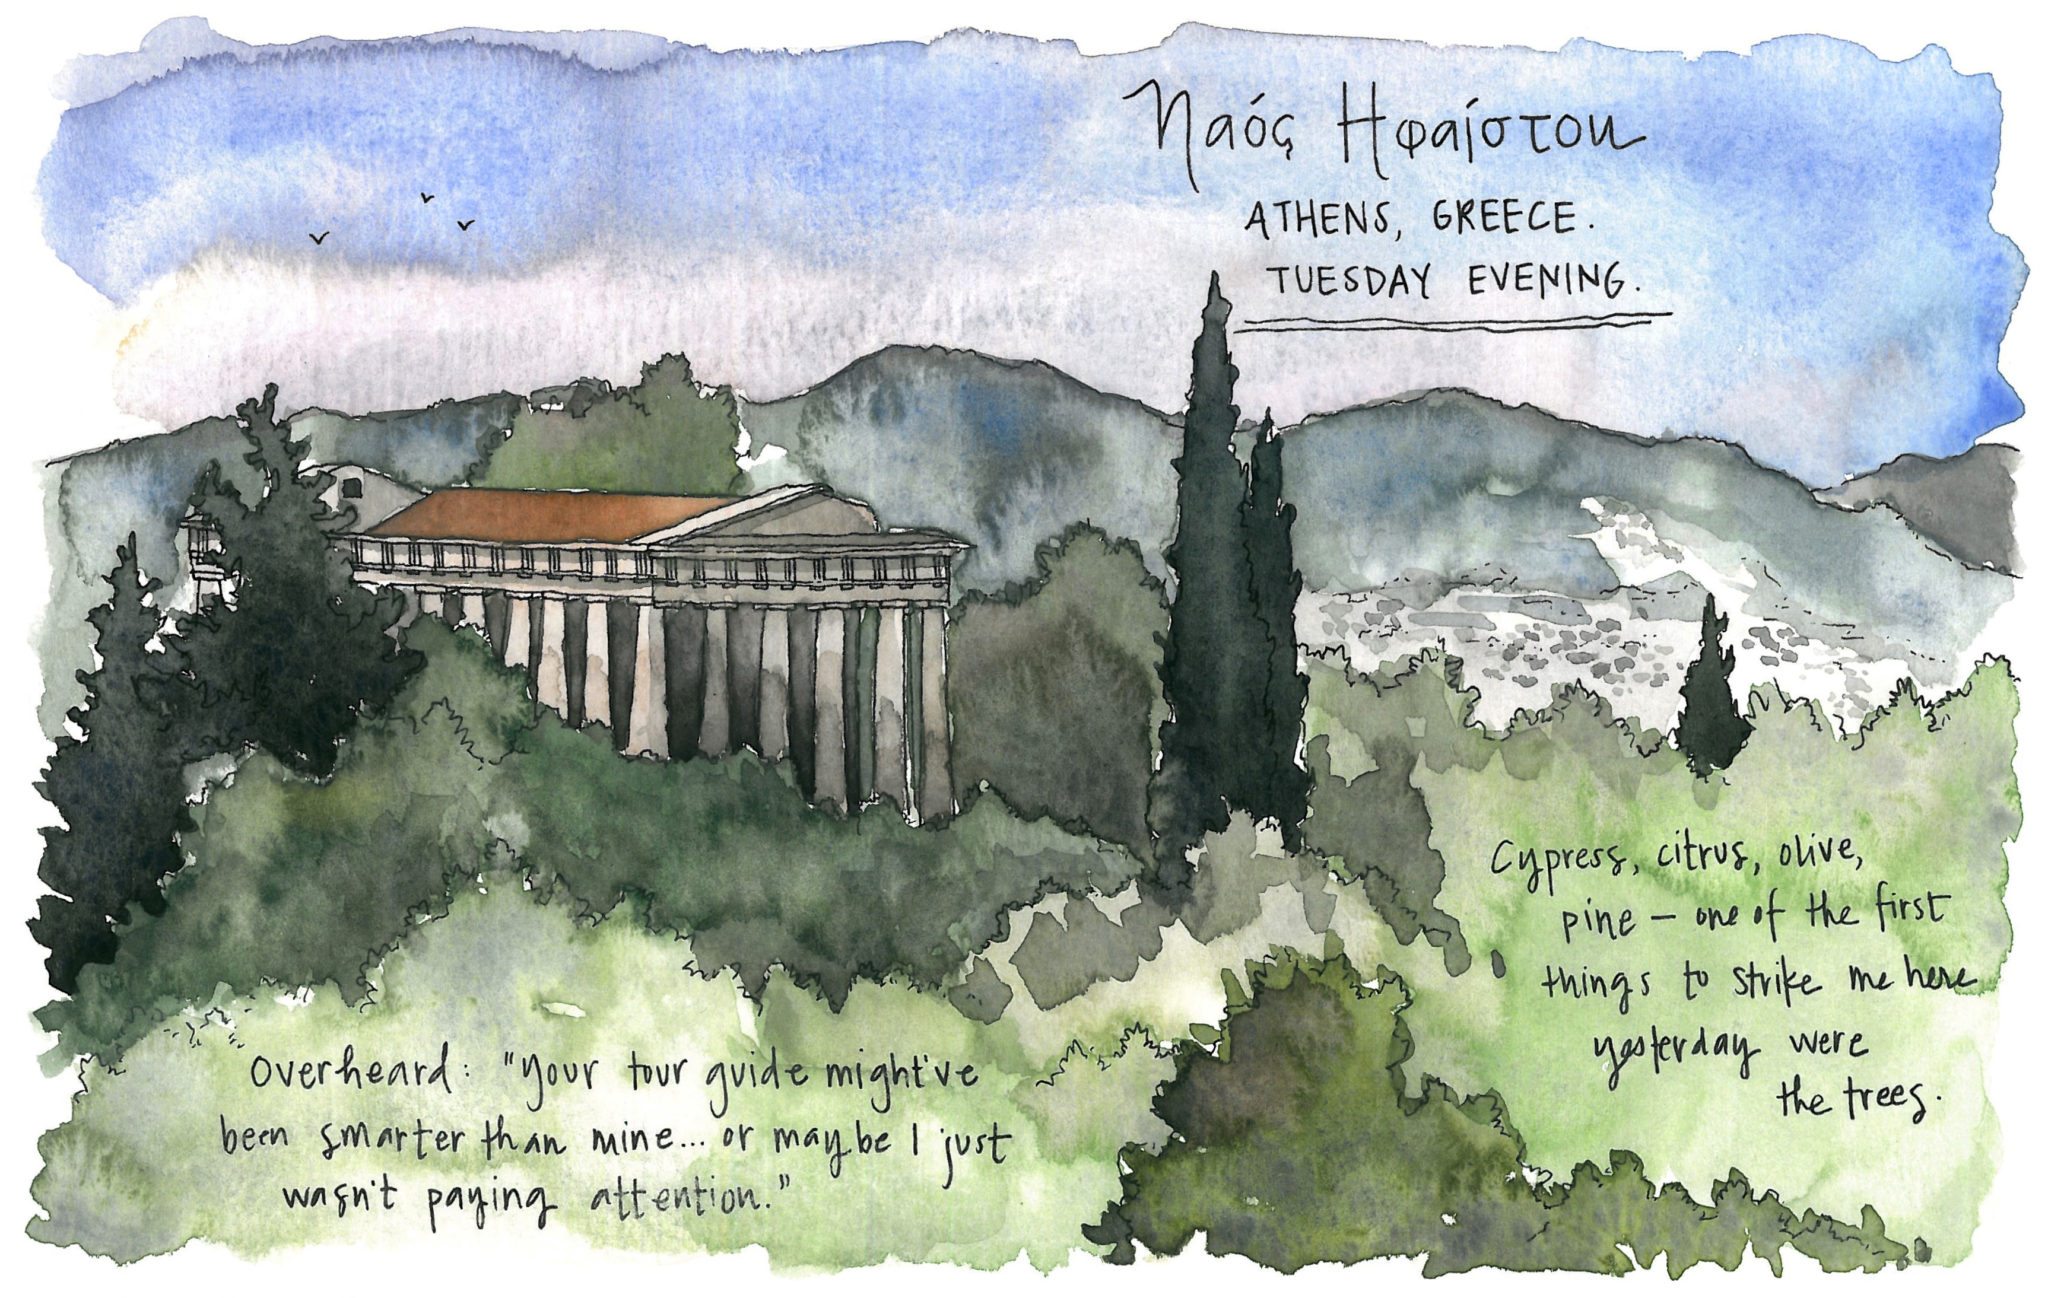 Ναός Ηφαίστου
ATHENS, GREECE.
TUESDAY EVENING.
Cypress, citrus, olive,
pine — one of the first
things to strike me here
yesterday were
the trees.
Overheard: "Your tour guide might've
been smarter than mine... or maybe I just
wasn't paying attention."